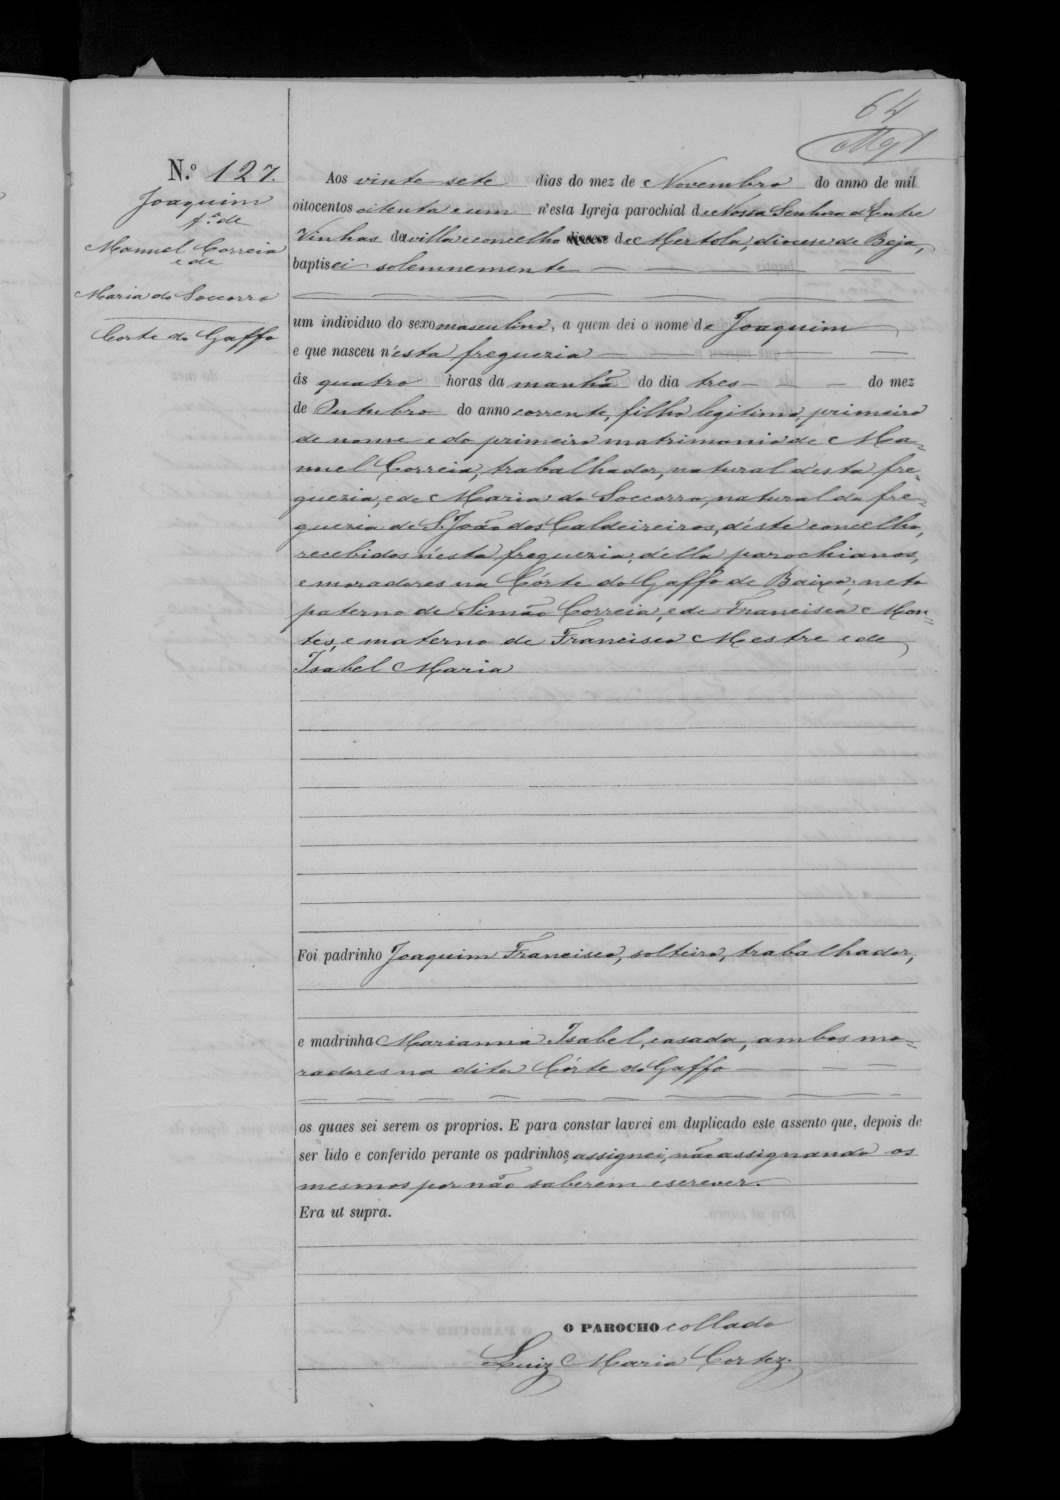 64
N.º 127.
Joaquim
f.º de
Manuel Correia
e de
Maria do Soccorro
Corte do Gaffo
Aos vinte sete dias do mez de Novembro do anno de mil
oitocentos oitenta e um n'esta Igreja parochial de Nossa Senhora d'Entre
Vinhas da villa e concelho de Mertola, diocese de Beja,
baptisei solemnemente
um individuo do sexo masculino, a quem dei o nome de Joaquim
e que nasceu n'esta freguezia
ás quatro horas da manhã do dia tres do mez
de Outubro do anno corrente, filho legitimo, primeiro
de nome e do primeiro matrimonio de Ma-
nuel Correia, trabalhador, natural d'esta fre-
guezia, e de Maria do Soccorro, natural da fre-
guezia de S. João dos Caldeireiros, d'éste concelho,
recebidos n'esta freguezia, d'ella parochianos,
e moradores na Córte do Gaffo de Baixo; neto
paterno de Simão Correia, e de Francisca Mon-
tes, e materno de Francisco Mestre e de
Isabel Maria
Foi padrinho Joaquim Francisco, solteiro, trabalhador,
e madrinha Marianna Isabel, casada, ambos mo-
radores na dita Córte do Gaffo
os quaes sei serem os proprios. E para constar lavrei em duplicado este assento que, depois de
ser lido e conferido perante os padrinhos, assignei, não assignando os
mesmos por não saberem escrever.
Era ut supra.
O PAROCHO collado
Luiz Maria Cortez